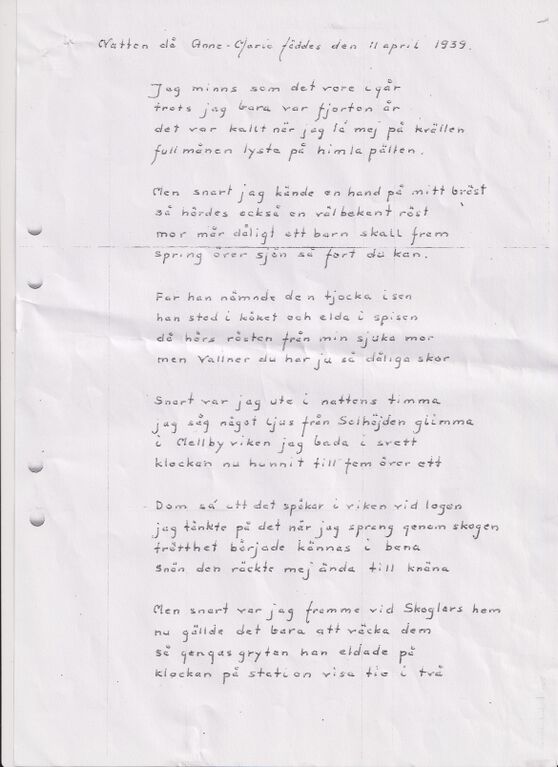 Natten då Anne-Marie föddes den 11 april 1939.
Jag minns som det vore igår
trots jag bara var fjorton år
det var kallt när jag la mej på kvällen
fullmånen lyste på himlapällen.
Men snart jag kände en hand på mitt bröst
så hördes också en välbekant röst
mor mår dåligt ett barn skall fram
spring över sjön så fort du kan.
Far han nämnde den tjocka isen
han stod i köket och elda i spisen
då hörs rösten från min sjuka mor
men Vallner du har ju så dåliga skor
Snart var jag ute i nattens timma
jag såg något ljus från Solhöjden glimma
i Mellby viken jag bada i svett
klockan nu hunnit till fem över ett
Dom sa att det spökar i viken vid logen
jag tänkte på det när jag sprang genom skogen
trötthet började kännas i bena
Snön den räckte mej ända till knäna
Men snart var jag framme vid Skoglars hem
nu gällde det bara att väcka dem
så gengasgrytan han eldade på
klockan på station visa tio i två